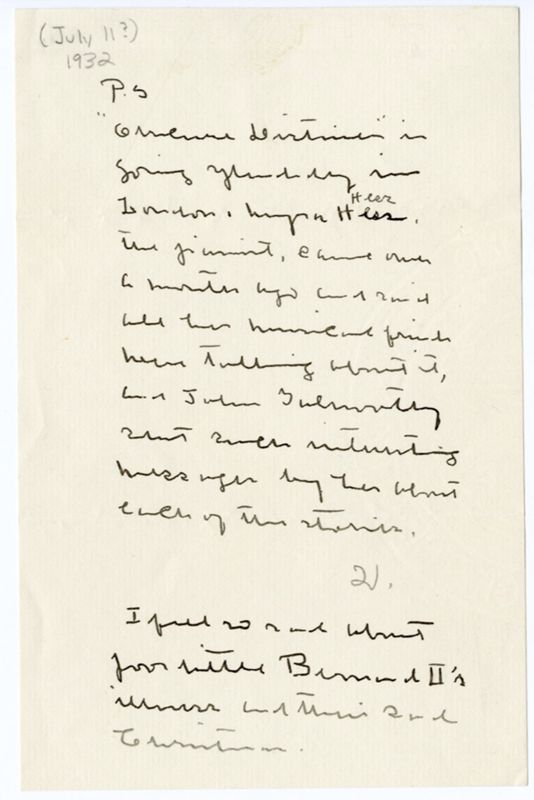 (July 11?)
1932
P.S
"Obscure Destinies" is
going splendidly in
London. Myra Hess Hess,
the pianist, came over
a month ago and said
all her musical friends
were talking about it,
and John Galsworthy
sent such interesting
messages by her about
each of the stories.
W.
I feel so sad about
poor little Bernard II's
illness and their sad
Christmas.